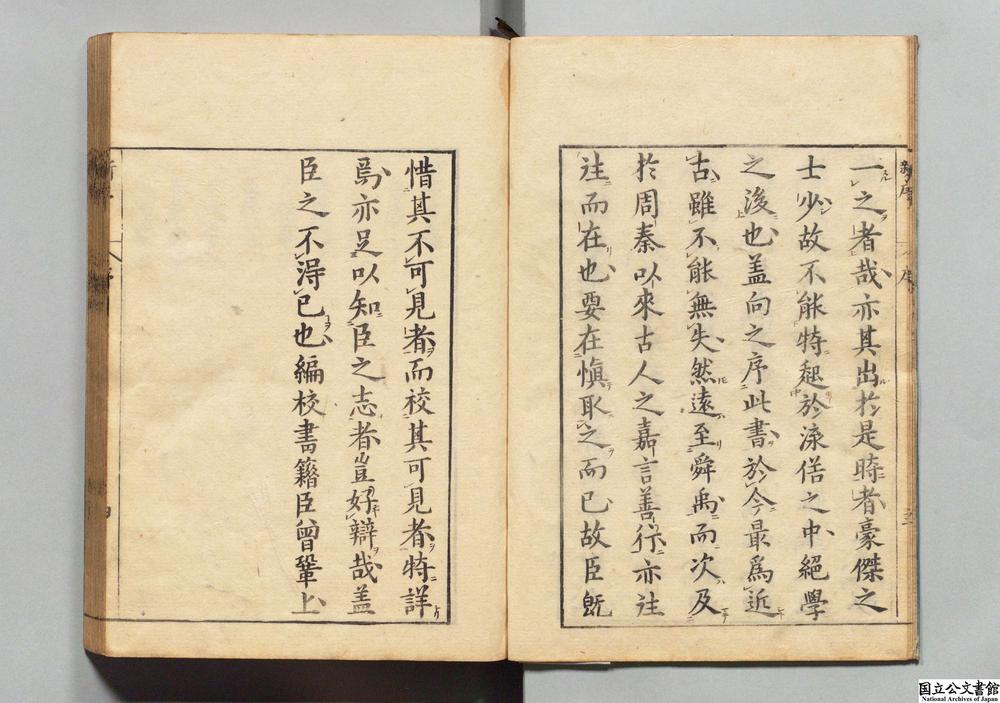 一之者哉亦其出於是時者豪傑之
士少故不能特起於流俗之中絕學
之後也盖向之序此書於今最為近
古雖不能無失然遠至舜禹而次及
於周秦以來古人之嘉言善行亦往
往而在也要在慎取之而已故臣既
惜其不可見者而校其可見者特詳
焉亦足以知臣之志者豈好辯哉盖
臣之不得已也編校書籍臣曾鞏上
新序
国立公文書館
National Archives of Japan